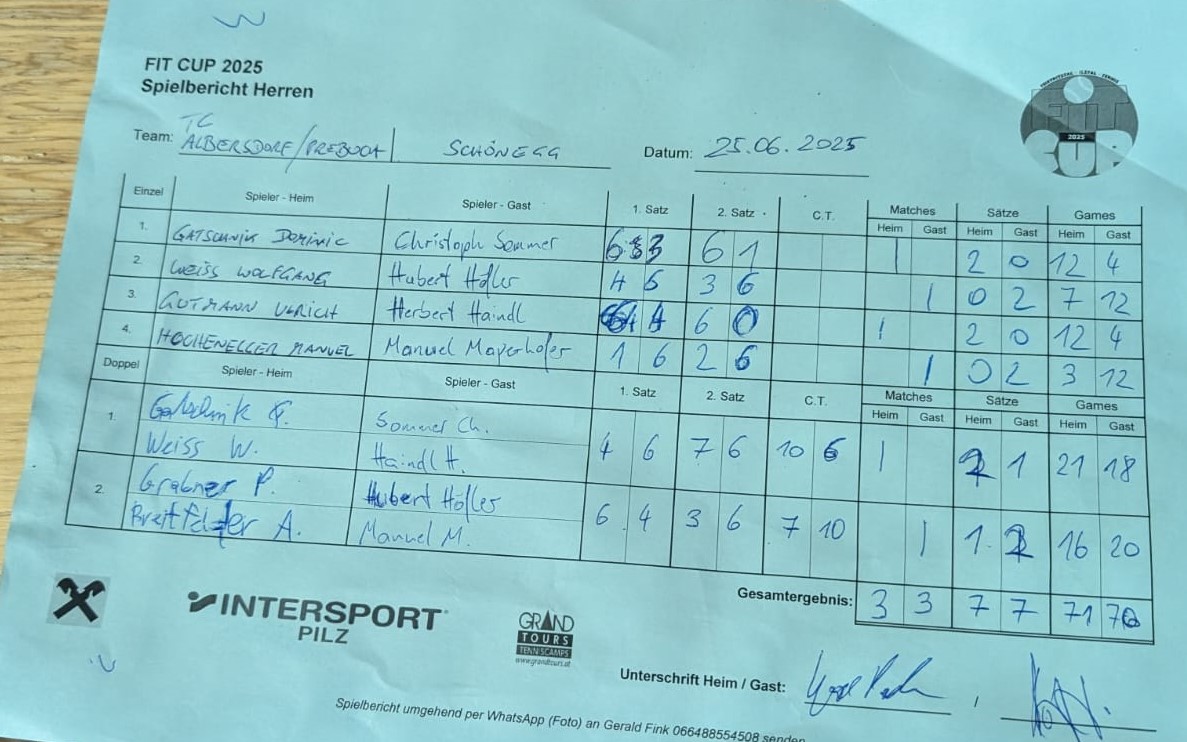 FIT CUP 2025
Spielbericht Herren
Team: TC ALBERSDORF/PREBUCH | SCHÖNEGG Datum: 25.06.2025
Einzel Spieler - Heim Spieler - Gast 1. Satz 2. Satz C.T. Matches Sätze Games
Heim Gast Heim Gast Heim Gast
1. GATSCHNIK DOMINIC Christoph Sommer 6 3 6 1 | 2 0 12 4
2. WEISS WOLFGANG Hubert Höfler 4 6 3 6 | 0 2 7 12
3. GUTMANN ULRICH Herbert Haindl 6 4 6 0 | 2 0 12 4
4. HOCHENELLER MANUEL Manuel Mayerhofer 1 6 2 6 | 0 2 3 12
Doppel Spieler - Heim Spieler - Gast 1. Satz 2. Satz C.T. Matches Sätze Games
Heim Gast Heim Gast Heim Gast
1. Gatschnik Sommer Ch.
Weiss W. Haindl H. 4 6 7 6 10 6 | 2 1 21 18
2. Grabner P. Hubert Höfler
Breitfelder A. Manuel M. 6 4 3 6 7 10 | 1 2 16 20
Gesamtergebnis: 3 3 7 7 71 70
INTERSPORT
PILZ
GRAND
TOURS
TENNISCAMPS
www.grandtours.at
Unterschrift Heim / Gast: /
Spielbericht umgehend per WhatsApp (Foto) an Gerald Fink 066488554508 senden